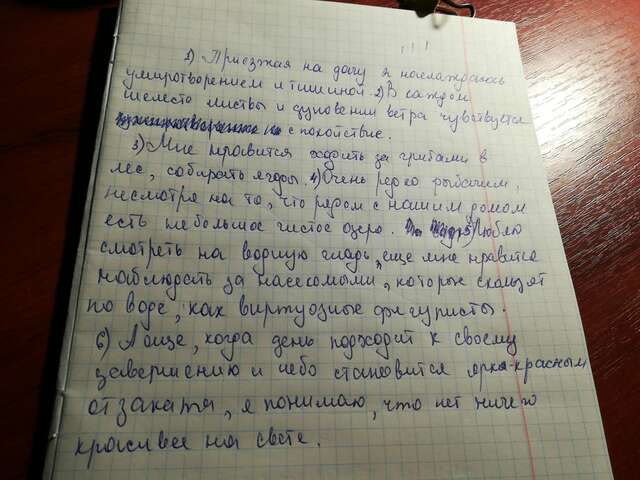 1) Приезжая на дачу я наслаждаюсь
умиротворением и тишиной. 2) В каждом
шелесте листвы и дуновении ветра чувствуется
спокойствие.
3) Мне нравится ходить за грибами в
лес, собирать ягоды. 4) Очень редко рыбачим,
несмотря на то, что рядом с нашим домом
есть небольшое чистое озеро. 5) Люблю
смотреть на водную гладь, еще мне нравится
наблюдать за насекомыми, которые скользят
по воде, как виртуозные фигуристы.
6) А еще, когда день подходит к своему
завершению и небо становится ярко-красным
от заката, я понимаю, что нет ничего
красивее на свете.